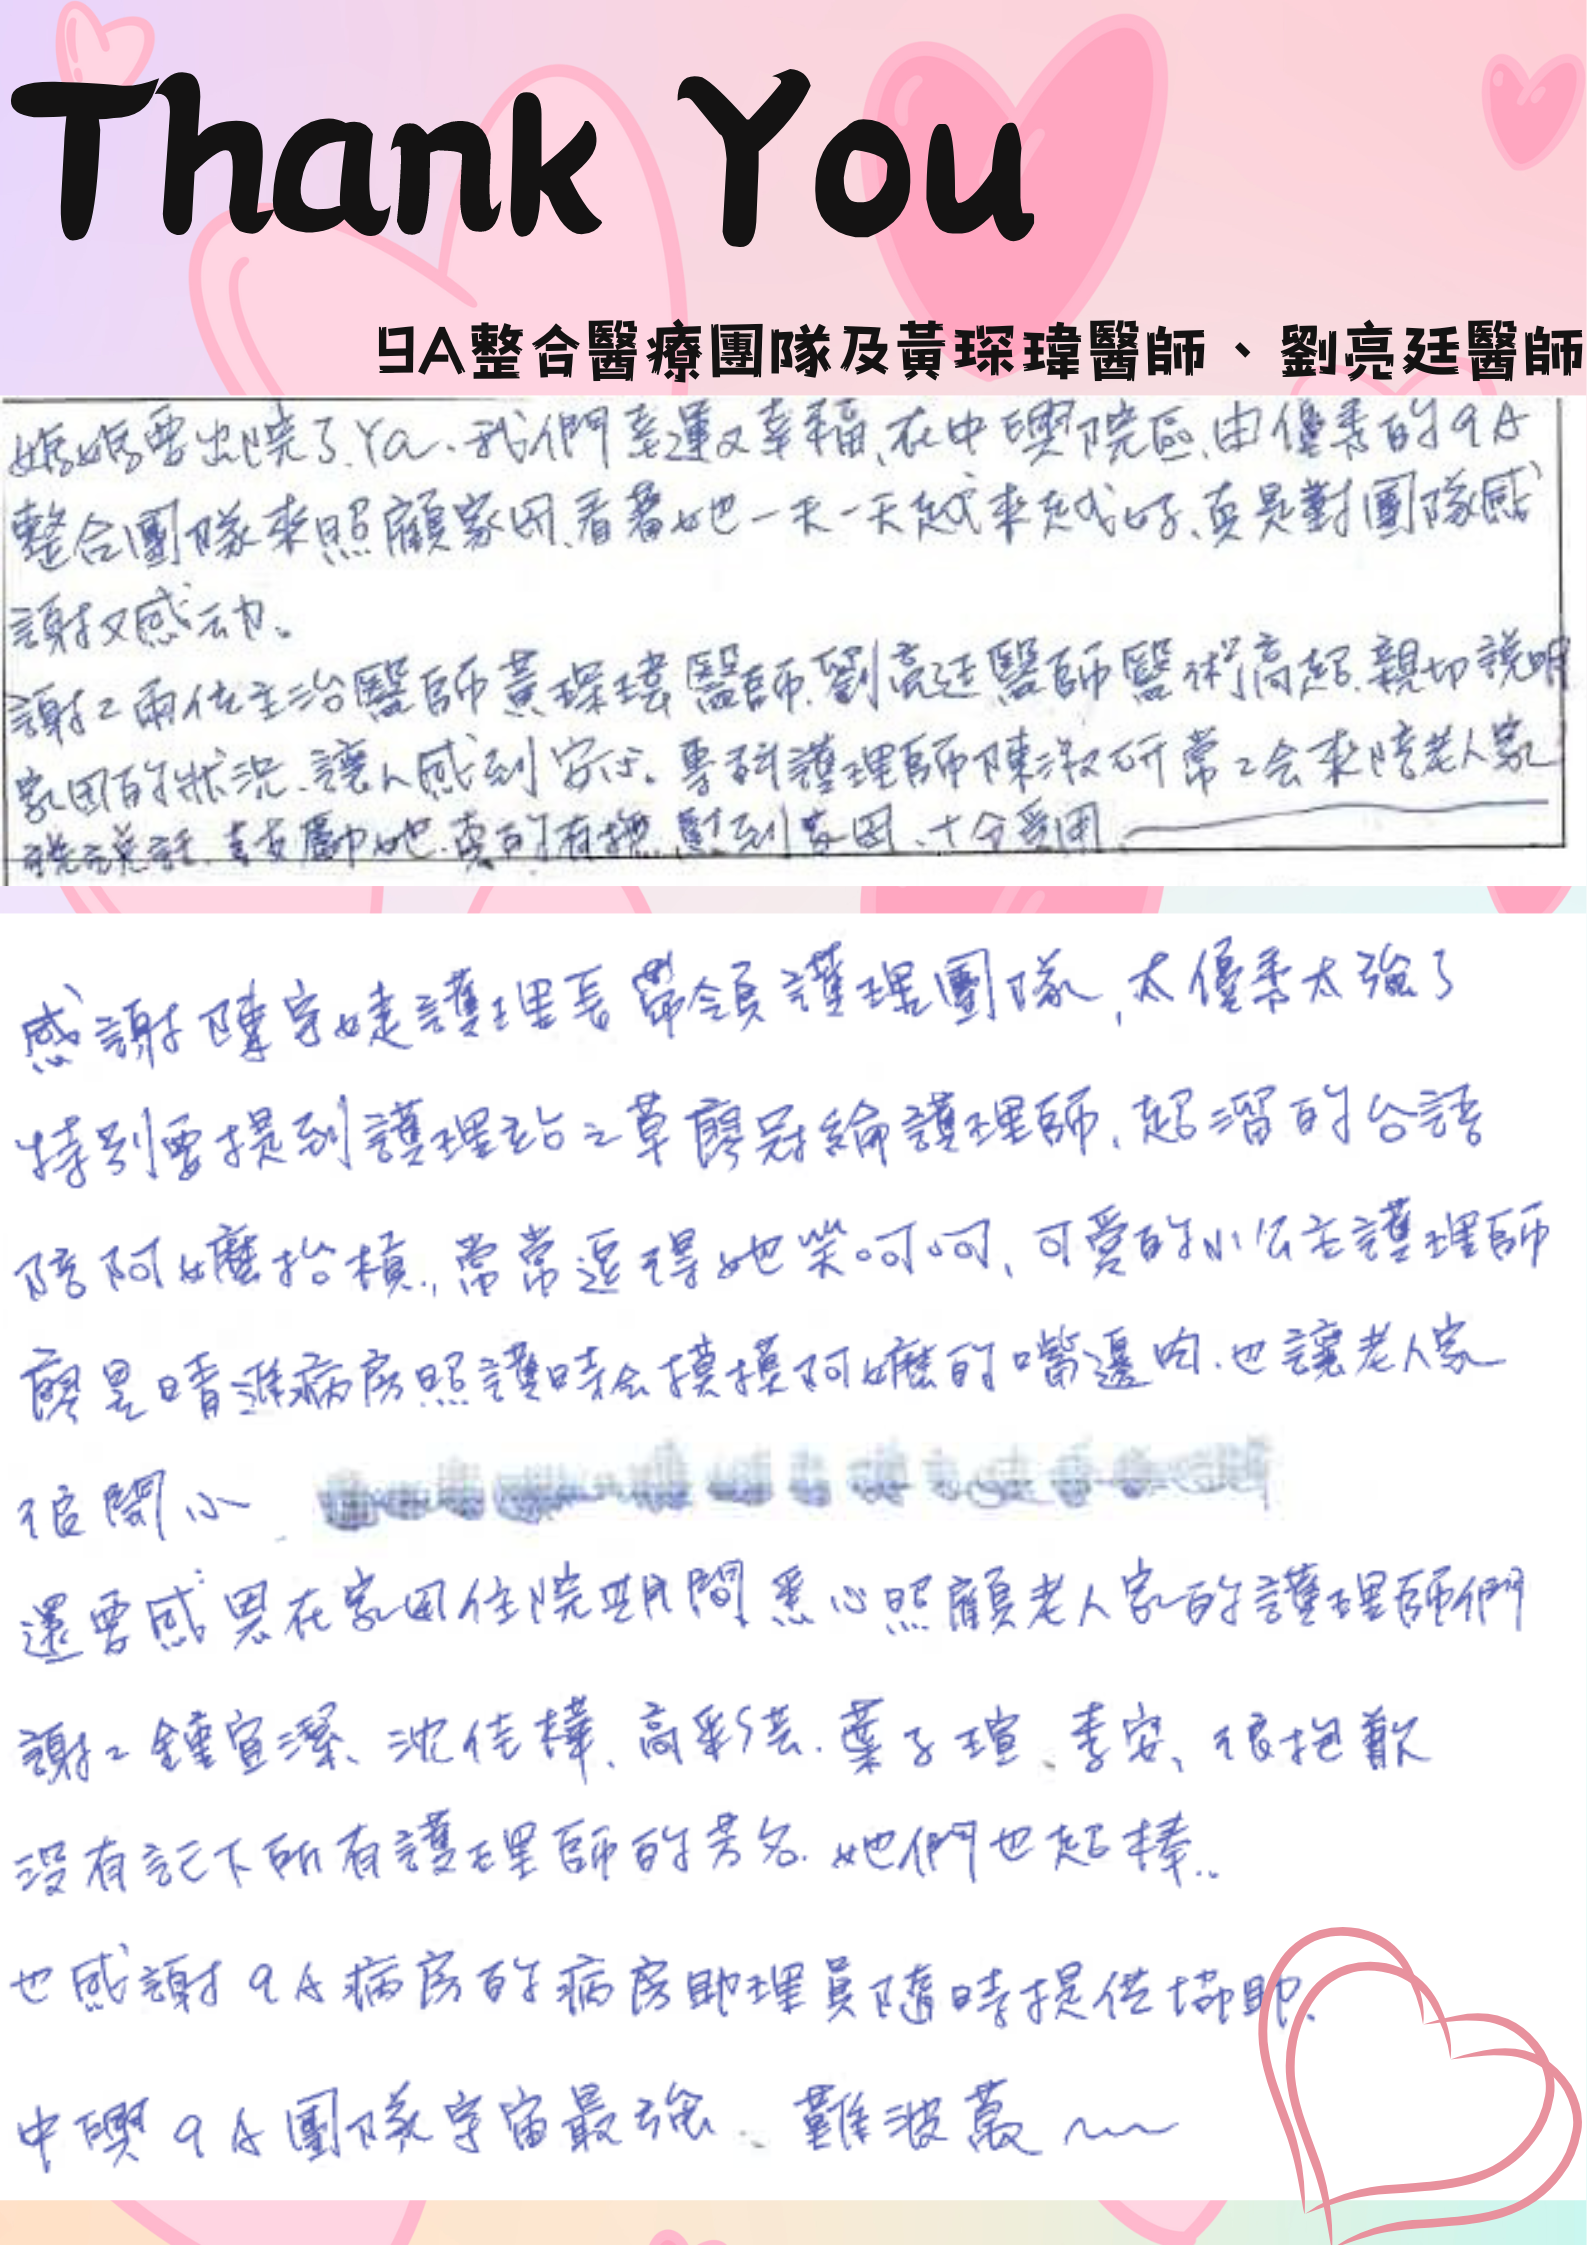 Thank You
9A整合醫療團隊及黃琛瑋醫師、劉亮廷醫師
媽媽要出院了.Ya.我們幸運又幸福,在中興院區,由優秀的9A
整合團隊來照顧家母,看著她一天一天越來越好,真是對團隊感
謝又感动。
謝謝兩位主治醫師黃琛瑋醫師.劉亮廷醫師醫術高超.親切說明
家母的狀況,讓人感到安心。專科護理師陳淑研常常会來陪老人家
說說話.鼓勵她.真的有撫慰到家母,十分受用.
感謝陳宇婕護理長帶領護理團隊,太優秀太強了
特別要提到護理站之草廖冠綸護理師,超溜的台語
陪阿嬤抬槓,常常逗得她笑呵呵,可愛的小公主護理師
廖昱晴進病房照護時会摸摸阿嬤的嘴邊肉.也讓老人家
很開心
還要感恩在家母住院期間,悉心照顧老人家的護理師們
謝謝鍾宣潔、沈佳樺、高彩芸.葉子瑄、李安、很抱歉
沒有記下所有護理師的芳名.她們也超棒..
也感謝9A病房的病房助理員隨時提供協助.
中興9A團隊宇宙最強、難波萬~~